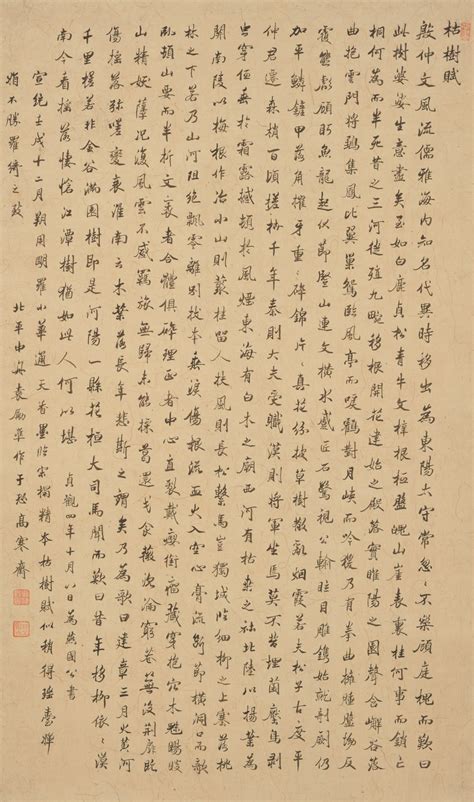 枯樹賦
殷仲文風流儒雅海內知名代異時移出為東陽太守常忽忽不樂顧庭槐而歎曰
此樹婆娑生意盡矣至如白鹿貞松青牛文梓根柢盤魄山崖表裏桂何事而銷亡
桐何為而半死昔之三河徙殖九畹移根開花建始之殿落實睢陽之園聲含嶰谷
曲抱雲門將雛集鳳比翼巢鴛臨風亭而唳鶴對月峽而吟猨乃有拳曲擁腫盤坳反
覆熊彪顧盼魚龍起伏節豎山連文橫水蹙匠石驚視公輸眩目雕鐫始就剞劂仍
加平鱗鏟甲落角摧牙重重碎錦片片真花紛披草樹散亂烟霞若夫松子古度平
仲君遷森梢百頃槎枿千年秦則大夫受職漢則將軍坐焉莫不苔埋菌壓鳥剝
虫穿低垂於霜露撼頓於風煙東海有白木之廟西河有枯桑之社北陸以楊葉為
關南陵以梅根作冶小山則叢桂留人扶風則長松繫馬豈獨城臨細柳之上塞落桃
林之下若乃山河阻絕飄零離別拔本垂淚傷根流血火入空心膏流斷節橫洞口而欹
臥頓山要而半折文袤者合體俱碎理正者中心直裂戴癭銜瘤藏穿抱穴木魅睗睒
山精妖孽況復風雲不感羈旅無歸未能採葛還成食薇沉淪窮巷蕪沒荊扉既
傷搖落彌嗟變衰淮南云木葉落長年悲斯之謂矣乃為歌曰建章三月火黃河
千里槎若非金谷滿園樹即是河陽一縣花桓大司馬聞而歎曰昔年移柳依依漢
南今看搖落悽愴江潭樹猶如此人何以堪 貞觀四年十月八日為燕國公書
宣統壬戌十二月朔用明羅小華通天香墨臨宋搨精本枯樹賦似稍得瑤臺嬋
娟不勝羅綺之致 北平中舟袁勵準作于恐高寒齋